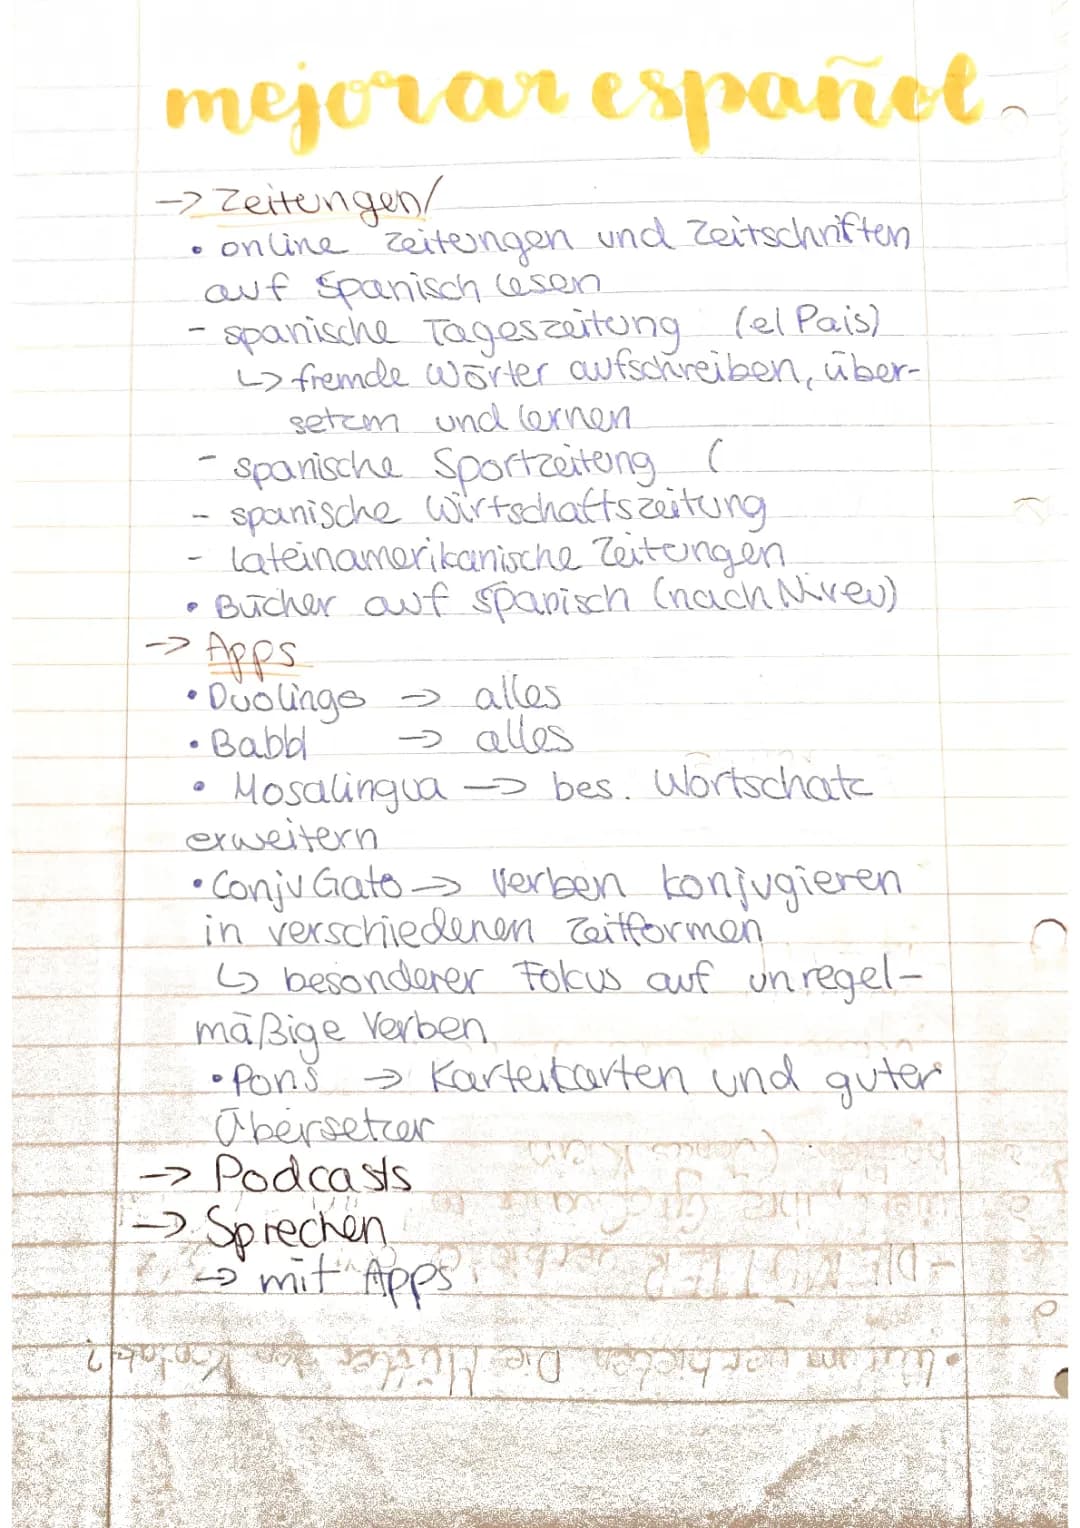 mejorar español
-> Zeitungen/
• online Zeitungen und Zeitschriften
auf Spanisch lesen
- spanische Tageszeitung (el Pais)
↳ fremde Wörter aufschreiben, über-
setzen und lernen
- spanische Sportzeitung (
- spanische Wirtschaftszeitung
- lateinamerikanische Zeitungen
• Bücher auf spanisch (nach Niveu)
-> Apps
• Duolingo -> alles
• Babbl -> alles
• Mosalingua -> bes. Wortschatz
erweitern
• ConjuGato -> Verben konjugieren
in verschiedenen Zeitformen
↳ besonderer Fokus auf unregel-
mäßige Verben
• Pons -> Karteikarten und guter
Übersetzer
-> Podcasts
-> Sprechen
-> mit Apps